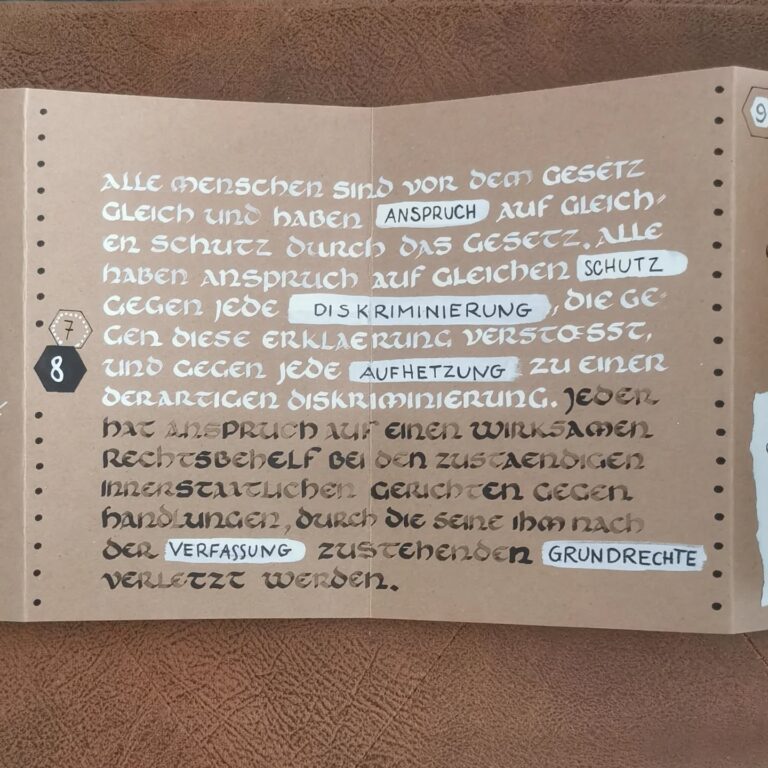 ALLE MENSCHEN SIND VOR DEM GESETZ
GLEICH UND HABEN ANSPRUCH AUF GLEICH-
EN SCHUTZ DURCH DAS GESETZ. ALLE
HABEN ANSPRUCH AUF GLEICHEN SCHUTZ
GEGEN JEDE DISKRIMINIERUNG, DIE GE-
7
GEN DIESE ERKLAERUNG VERSTŒSST,
8
UND GEGEN JEDE AUFHETZUNG ZU EINER
DERARTIGEN DISKRIMINIERUNG. JEDER
HAT ANSPRUCH AUF EINEN WIRKSAMEN
RECHTSBEHELF BEI DEN ZUSTAENDIGEN
INNERSTAATLICHEN GERICHTEN GEGEN
HANDLUNGEN, DURCH DIE SEINE IHM NACH
DER VERFASSUNG ZUSTEHENDEN GRUNDRECHTE
VERLETZT WERDEN.
9